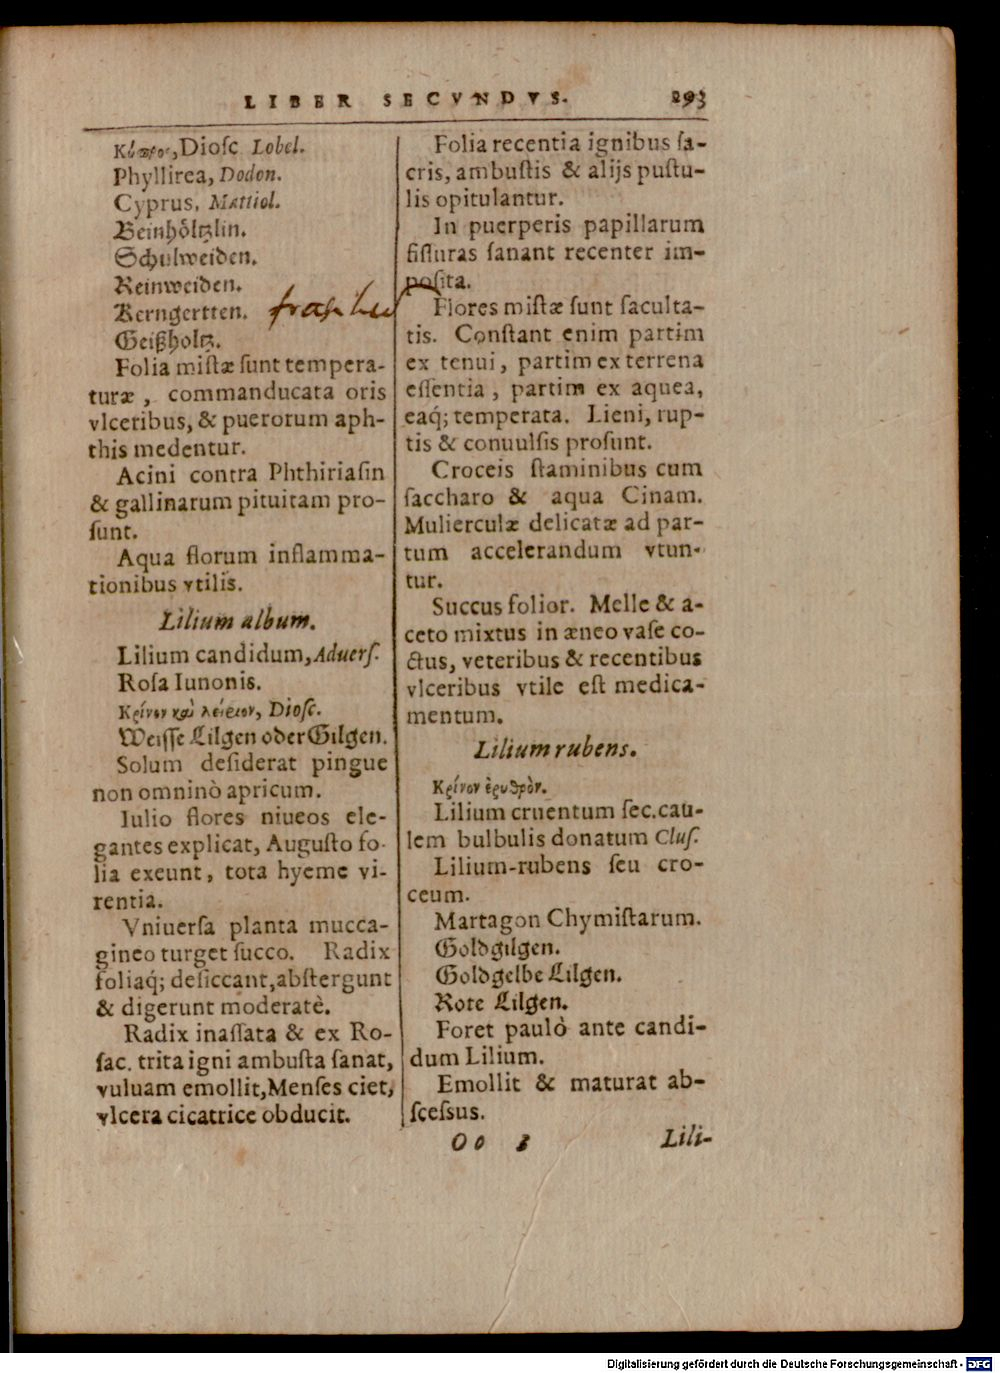 LIBER SECVNDVS. 293
Κύπρος, Dioſc. Lobel.
Phyllirea, Dodon.
Cyprus. Mattiol.
Beinhöltzlin.
Schulweiden.
Reinweiden.
Kerngertten.
Geißholtz.
Folia miſtæ ſunt tempera-
turæ, commanducata oris
vlceribus, & puerorum aph-
this medentur.
Acini contra Phthiriaſin
& gallinarum pituitam pro-
ſunt.
Aqua florum inflamma-
tionibus vtilis.
Lilium album.
Lilium candidum, Aduerſ.
Roſa Iunonis.
Κρίνον καὶ λείριον, Dioſc.
Weiſſe Lilgen oder Gilgen.
Solum deſiderat pingue
non omninò apricum.
Iulio flores niueos ele-
gantes explicat, Auguſto fo-
lia exeunt, tota hyeme vi-
rentia.
Vniuerſa planta mucca-
gineo turget ſucco. Radix
foliaq́; deſiccant, abſtergunt
& digerunt moderatè.
Radix inaſſata & ex Ro-
ſac. trita igni ambuſta ſanat,
vuluam emollit, Menſes ciet,
vlcera cicatrice obducit.
Folia recentia ignibus ſa-
cris, ambuſtis & alijs puſtu-
lis opitulantur.
In puerperis papillarum
fiſſuras ſanant recenter im-
poſita.
Flores miſtæ ſunt faculta-
tis. Conſtant enim partim
ex tenui, partim ex terrena
eſſentia, partim ex aquea,
eaq́; temperata. Lieni, rup-
tis & conuulſis proſunt.
Croceis ſtaminibus cum
ſaccharo & aqua Cinam.
Mulierculæ delicatæ ad par-
tum accelerandum vtun-
tur.
Succus folior. Melle & a-
ceto mixtus in æneo vaſe co-
ctus, veteribus & recentibus
vlceribus vtile eſt medica-
mentum.
Lilium rubens.
Κρίνον ἐρυθρὸν.
Lilium cruentum ſec. cau-
lem bulbulis donatum Cluſ.
Lilium-rubens ſeu cro-
ceum.
Martagon Chymiſtarum.
Goldgilgen.
Goldgelbe Lilgen.
Rote Lilgen.
Foret paulò ante candi-
dum Lilium.
Emollit & maturat ab-
ſceſsus.
Oo 3 Lili-
Digitalisierung gefördert durch die Deutsche Forschungsgemeinschaft - DFG